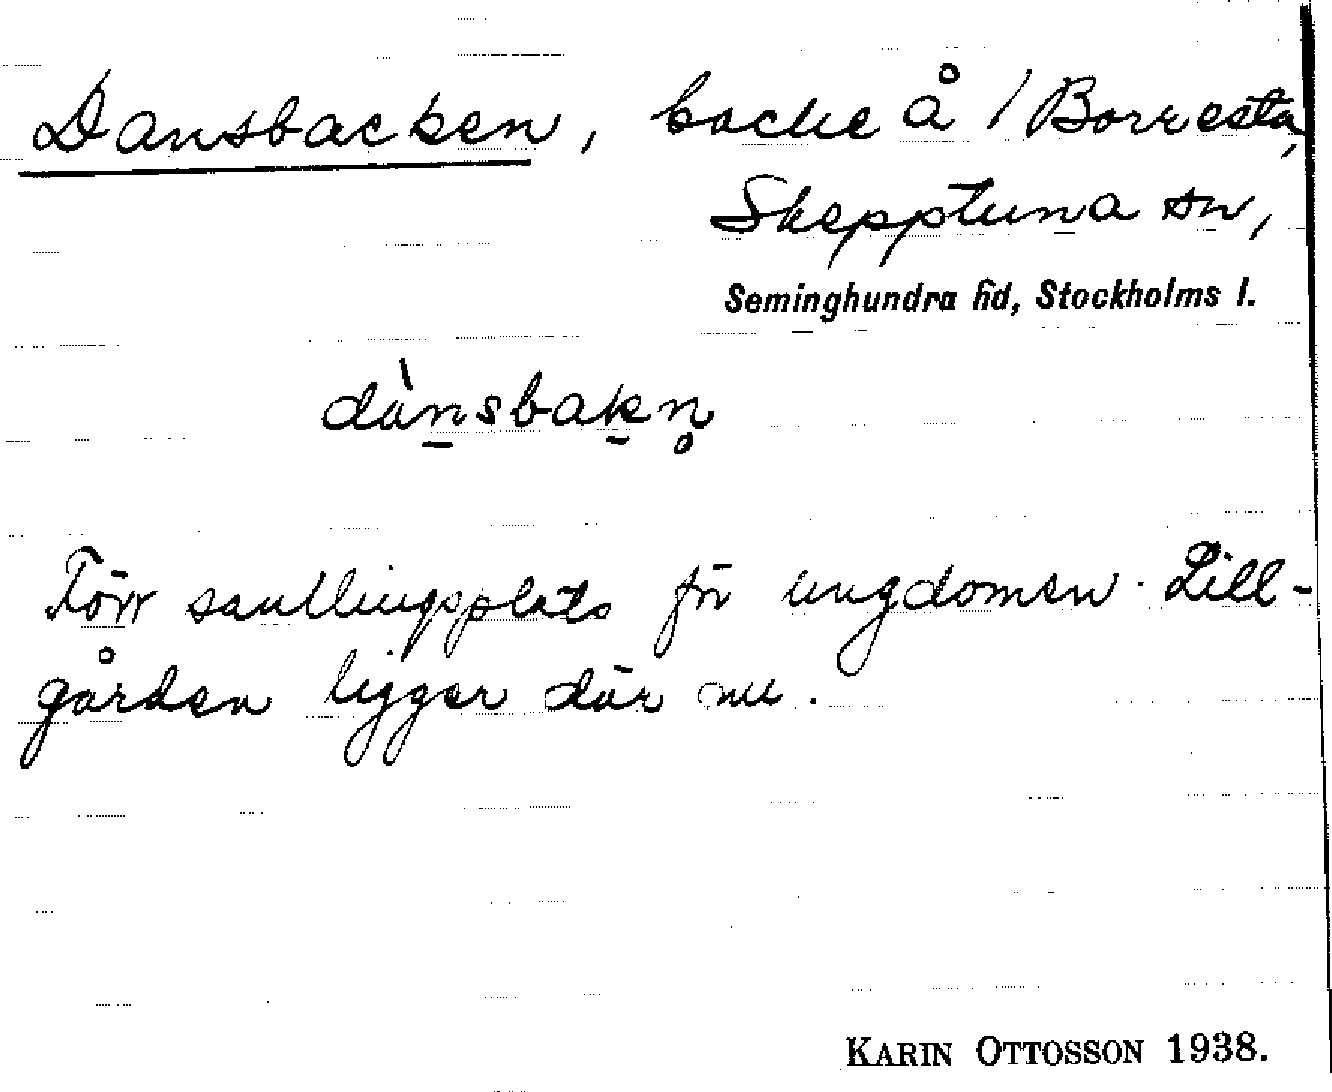 Dansbacken, backe å / Borresta,
Skepptuna sn,
Seminghundra hd, Stockholms l.
dànsbakn̥
Förr samlingsplats för ungdomen. Lill-
gården ligger där nu.
KARIN OTTOSSON 1938.